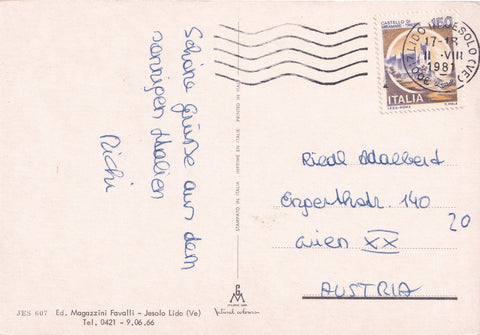 Schöne Grüße aus dem
sonnigen Italien
Michi
CASTELLO DI
MIRAMARE - TRIESTE
150
ITALIA
LIDO JESOLO (VE)
17-18
VIII
1981
Riedl Adalbert
140
20
Wien XX
AUSTRIA
STAMPATO IN ITALIA - IMPRIMÉ EN ITALIE - PRINTED IN ITALY
JES 607 Ed. Magazzini Favalli - Jesolo Lido (Ve)
Tel. 0421 - 9.06.66
Natural colours